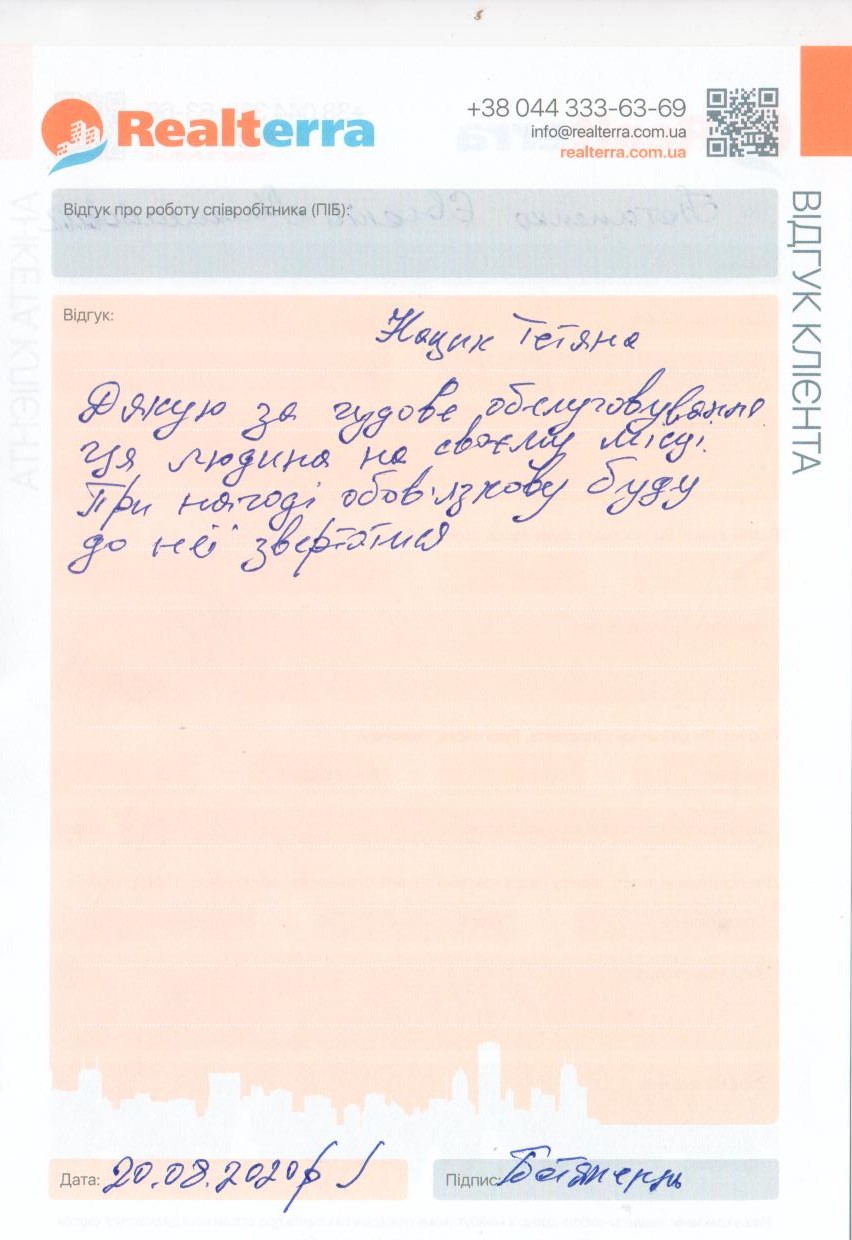 Realterra
+38 044 333-63-69
info@realterra.com.ua
realterra.com.ua
ВІДГУК КЛІЄНТА
Відгук про роботу співробітника (ПІБ):
Відгук:
Нацик Тетяна
Дякую за чудове обслуговування
Ця людина на своєму місці.
При нагоді обов'язкову буду
до неї звертатися
Дата: 20.08.2020р
Підпис: